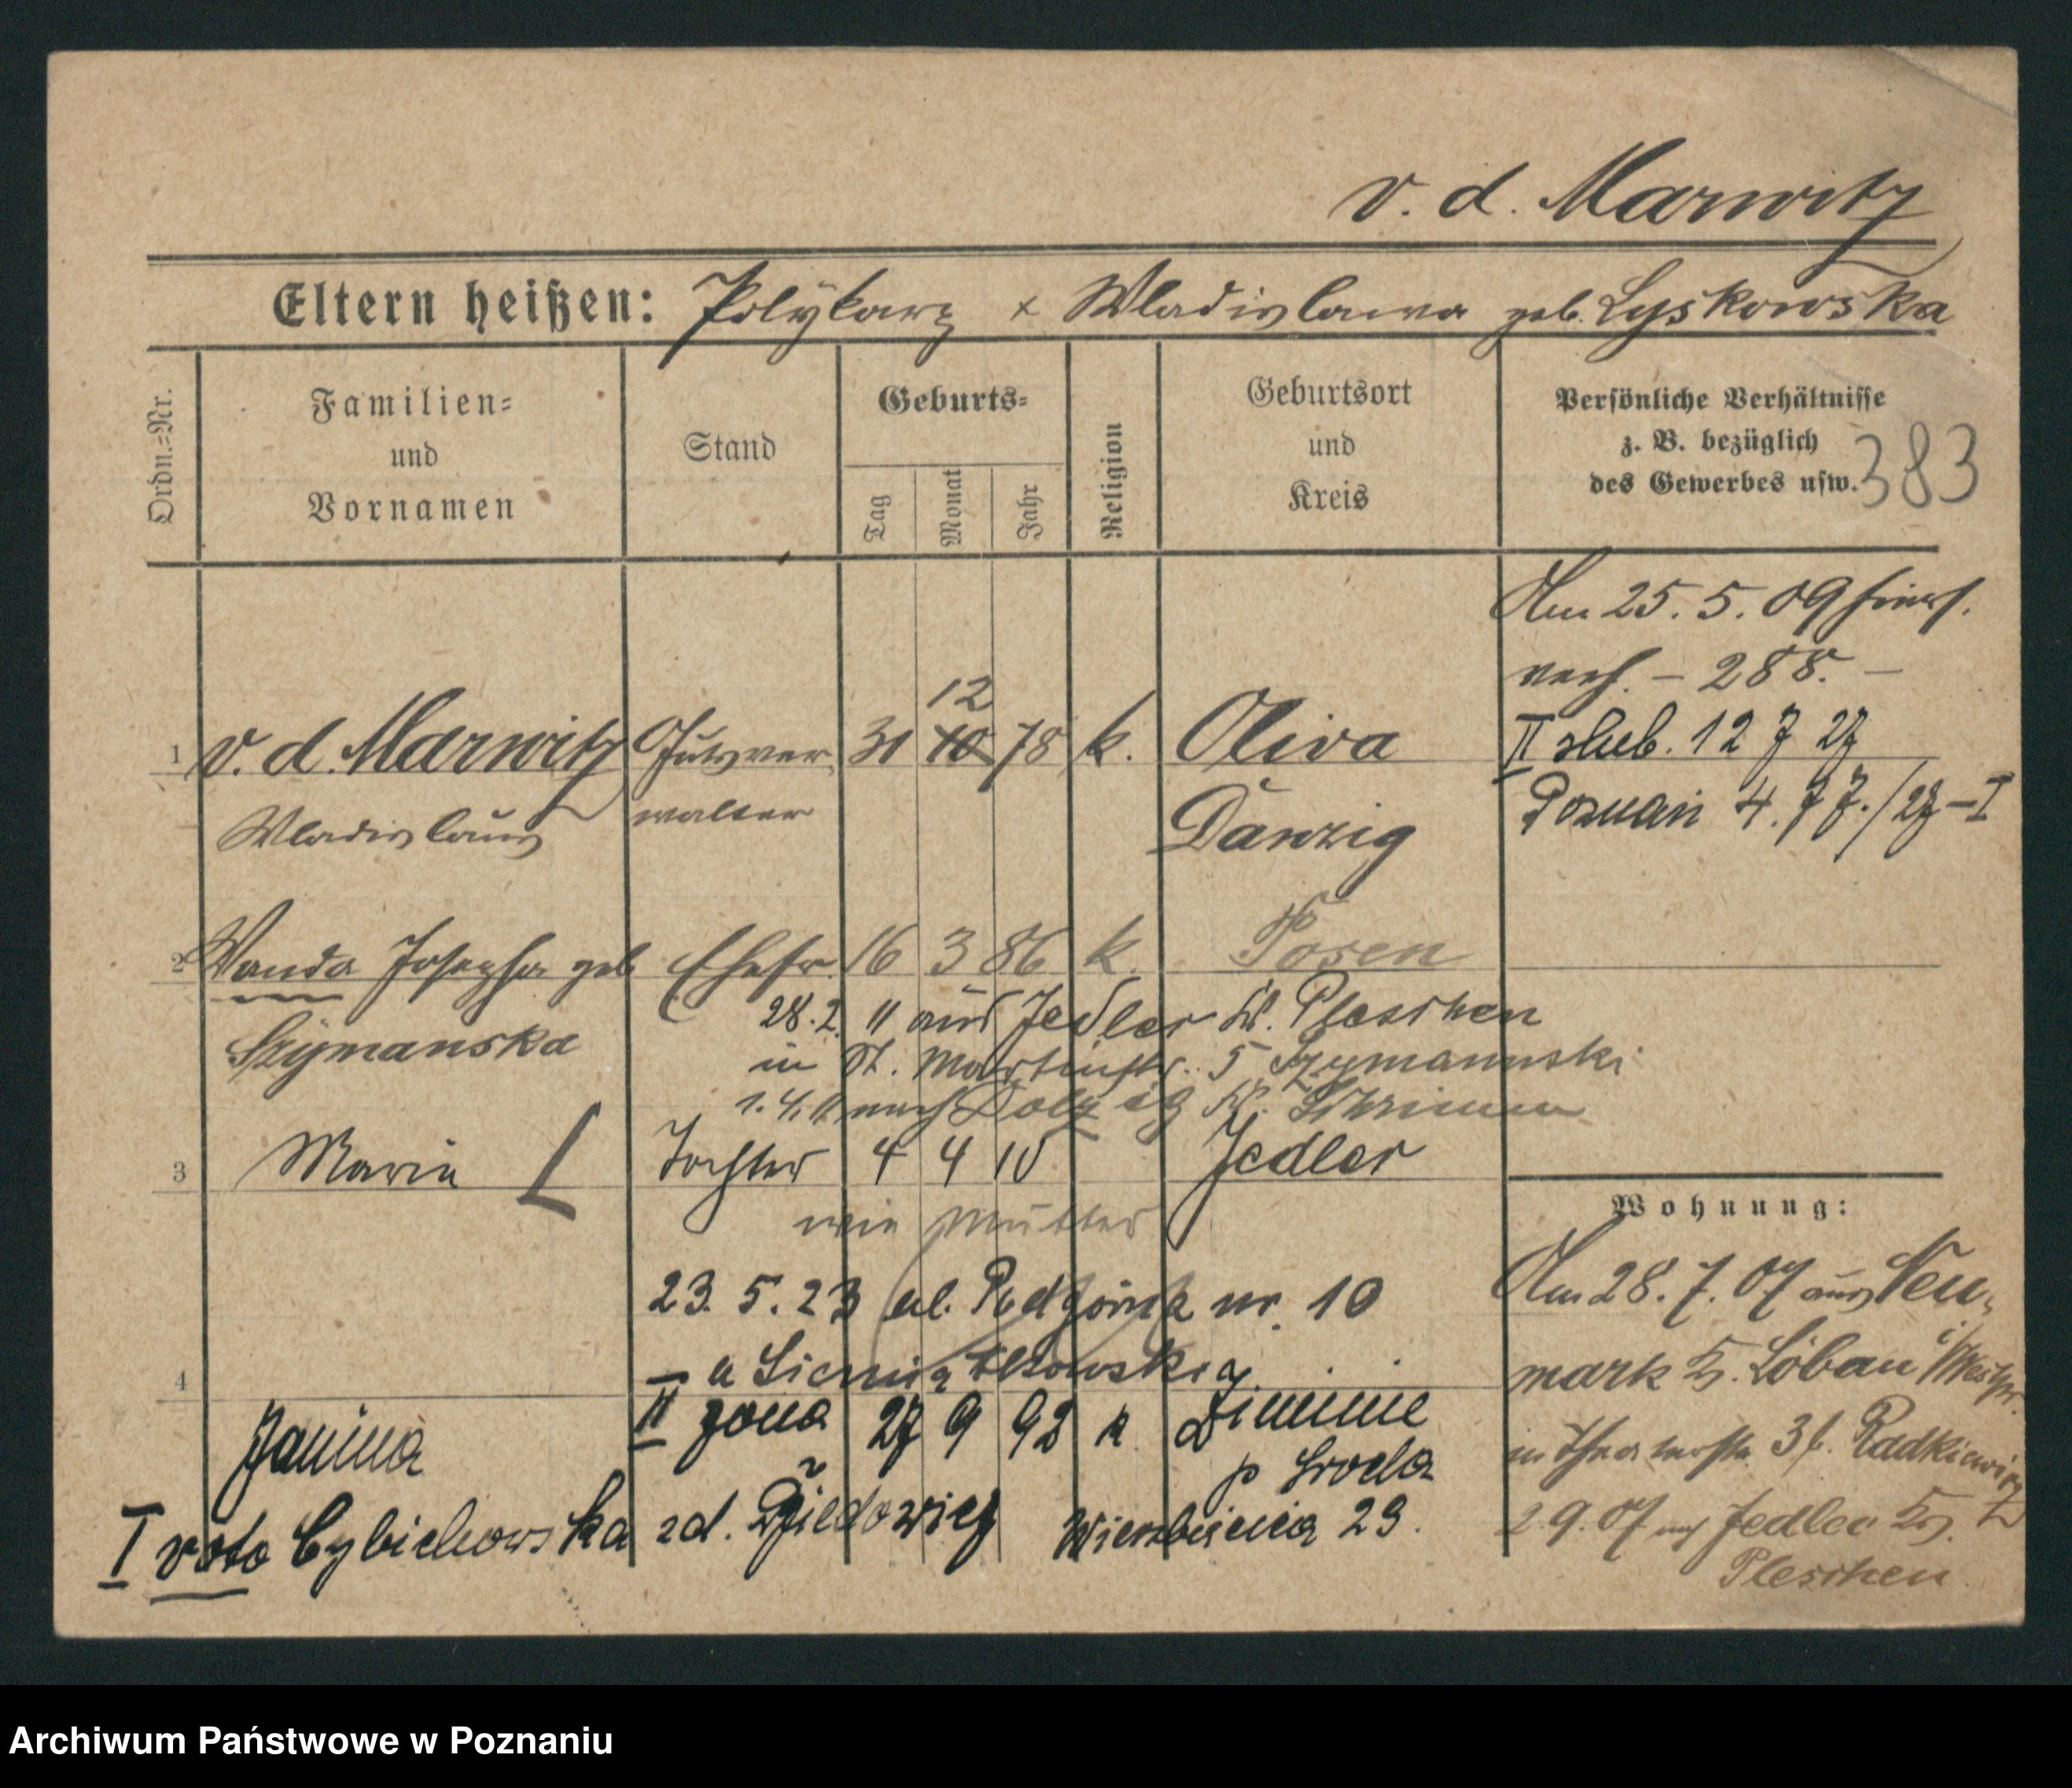 v. d. Marwitz
Eltern heißen: Polykarp + Wladislawa geb. Lyskowska
Ordn.=Nr.
Familien=
und
Vornamen
Stand
Geburts=
Tag
Monat
Jahr
Religion
Geburtsort
und
Kreis
Persönliche Verhältnisse
z. B. bezüglich
des Gewerbes usw.
383
Am 25. 5. 09 hies.
verh. – 288. –
12
1 v. d. Marwitz Gutsver- 31 10 78 k. Oliva
Wladislaus walter Danzig
II slub. 12 7 27
Poznań 4. 77./27 – I
2 Wanda Josepha geb Ehefr. 16 3 86 k. Posen
Szymanska
28.2. " aus Jedlec Kr. Pleschen
in St. Martinstr. 5 Szymannski
1.4. 11 nach Dolzig Kr. Schrimm
3 Maria Tochter 4 4 10 Jedlec
wie Mutter
23. 5. 23 ul. Podgórna nr. 10
u
4
Janina II żona 27 9 92 k Ziminie
p Sroda
I voto Cybichowska zd. Wierzbięcice 29.
Wohnung:
Am 28. 7. 07 aus Neu-
mark Kr. Löbau i/Westpr.
in 3 b. Radkiewicz
2. 9. 07 nach Jedlec Kr.
Pleschen
Archiwum Państwowe w Poznaniu